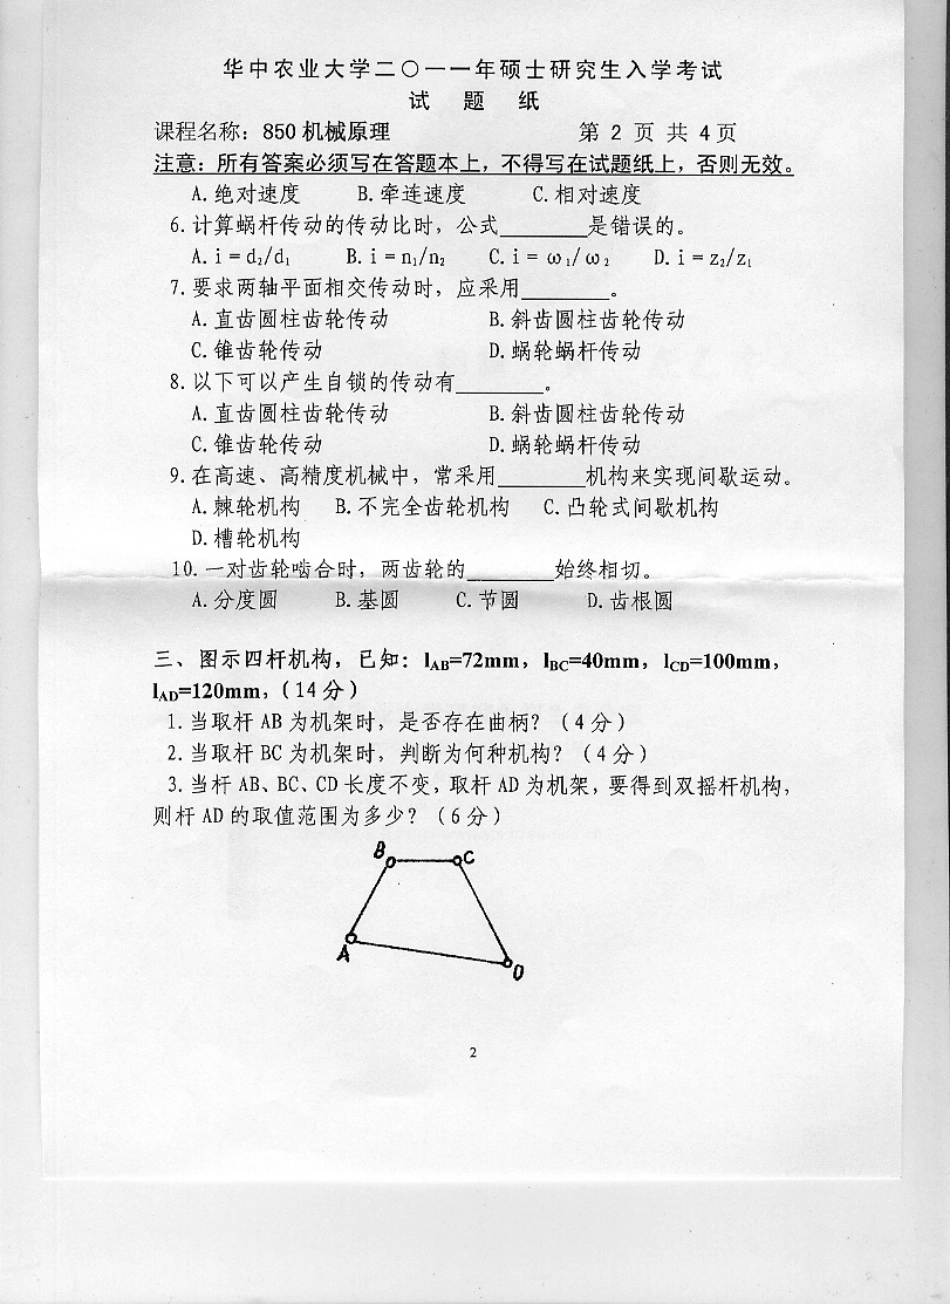 华中农业大学二○一一年硕士研究生入学考试
试 题 纸
课程名称：850 机械原理 第 2 页 共 4 页
注意：所有答案必须写在答题本上，不得写在试题纸上，否则无效。
A. 绝对速度 B. 牵连速度 C. 相对速度
6. 计算蜗杆传动的传动比时，公式________是错误的。
A. i = d₂/d₁ B. i = n₁/n₂ C. i = ω₁/ω₂ D. i = z₂/z₁
7. 要求两轴平面相交传动时，应采用________。
A. 直齿圆柱齿轮传动 B. 斜齿圆柱齿轮传动
C. 锥齿轮传动 D. 蜗轮蜗杆传动
8. 以下可以产生自锁的传动有________。
A. 直齿圆柱齿轮传动 B. 斜齿圆柱齿轮传动
C. 锥齿轮传动 D. 蜗轮蜗杆传动
9. 在高速、高精度机械中，常采用________机构来实现间歇运动。
A. 棘轮机构 B. 不完全齿轮机构 C. 凸轮式间歇机构
D. 槽轮机构
10. 一对齿轮啮合时，两齿轮的________始终相切。
A. 分度圆 B. 基圆 C. 节圆 D. 齿根圆
三、图示四杆机构，已知：lAB=72mm，lBC=40mm，lCD=100mm，
lAD=120mm，(14 分)
1. 当取杆 AB 为机架时，是否存在曲柄？（4 分）
2. 当取杆 BC 为机架时，判断为何种机构？（4 分）
3. 当杆 AB、BC、CD 长度不变，取杆 AD 为机架，要得到双摇杆机构，
则杆 AD 的取值范围为多少？（6 分）
B C
A D
2